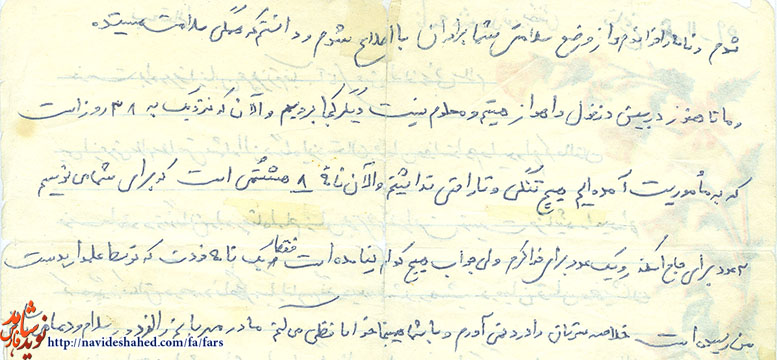 شدم و نامه را خواندم و از وضع سلامتی شما برادران با اطلاع شدم و دانستم که همگی سلامت هستید
و ما تا هنوز در بین دزفول و اهواز هستیم و معلوم نیست دیگر کجا برویم و الآن که نزدیک به ۳۸ روز است
که به مأموریت آمده‌ایم هیچ تنگی و ناراحتی نداشتیم و الآن نامه ۸ هشتمی است که برای شما می نویسم
عدد برای حاج و یک عدد برای خواهرم ولی جواب هیچ کدام نیامده است فقط یک نامه خودت که توسط علمدار بدست
من رسیده است خلاصه سرتان را درد نمی آورم و با شما خداحافظی می کنم مادر مهربانم سلام و دعا
نوید شاهد فارس
http://navideshahed.com/fa/fars